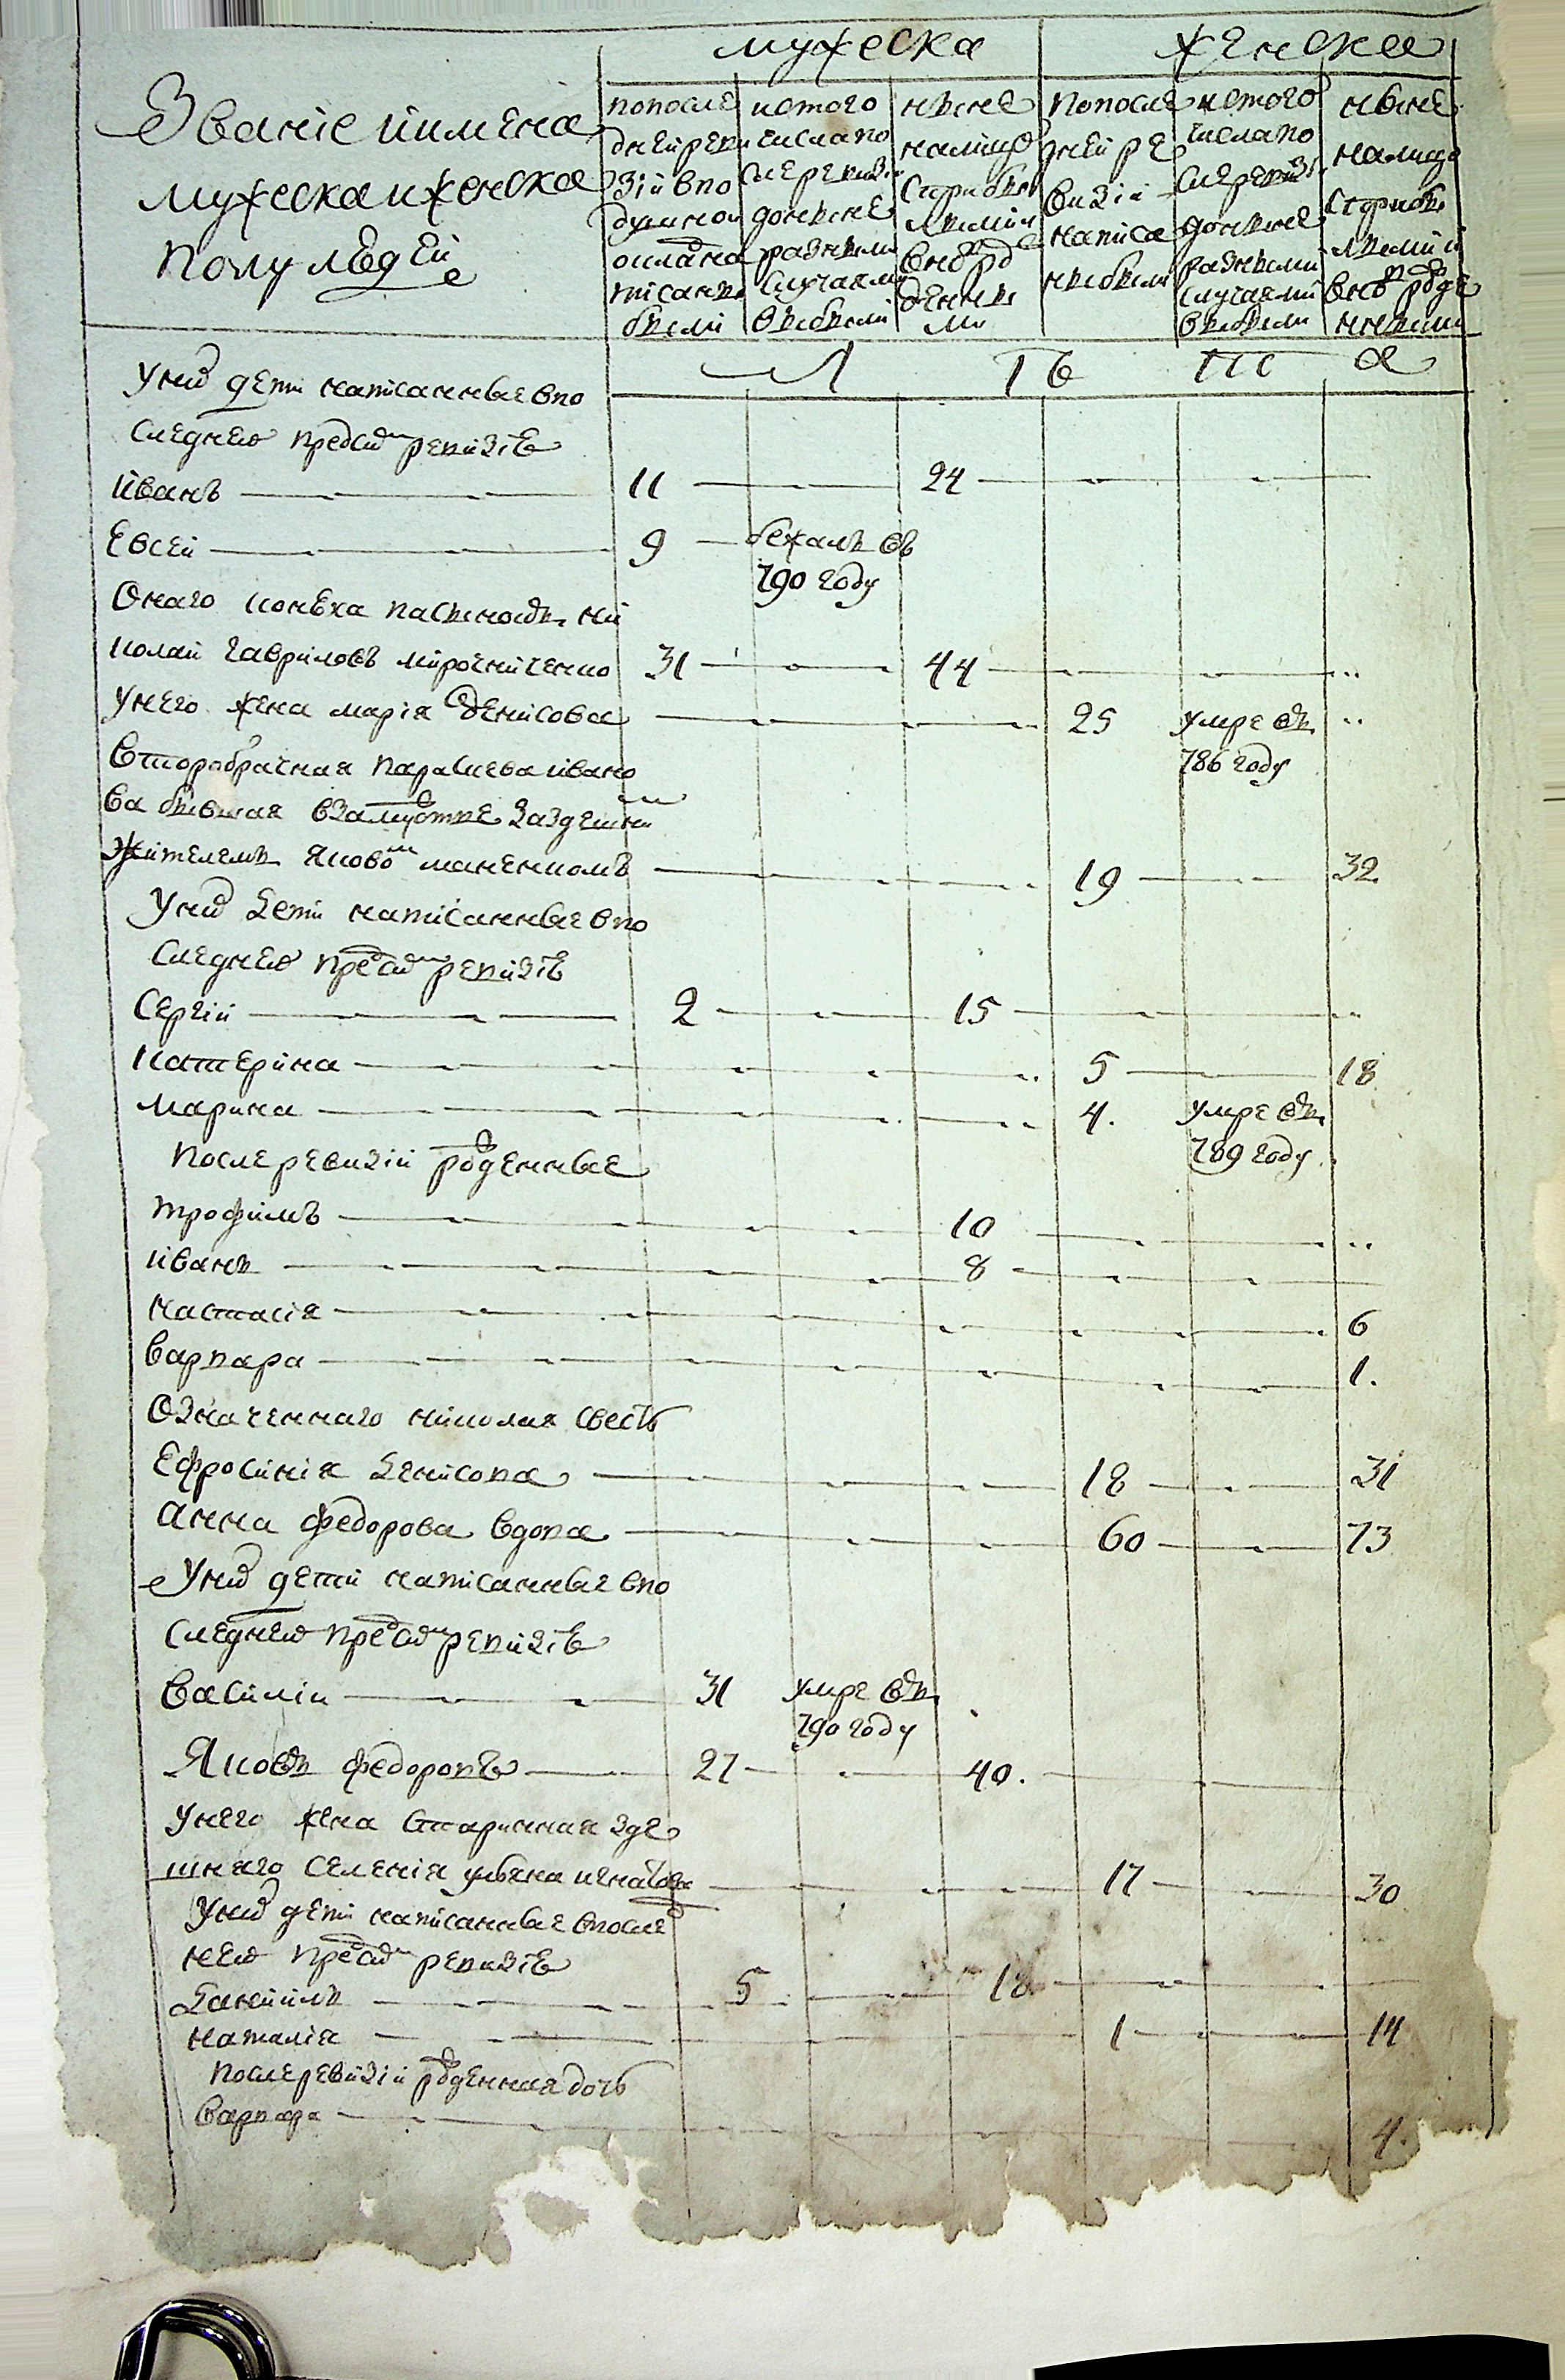 мужеска
женска
Званіе и имена
мужеска и женска
полу людей
попосле
дней реви
зіи в по
душном
окладе на
писанны
были
ис того
числа по
сле ревизи
до ныне
разными
случаями
выбыли
ныне
на лицо
с прибы
лыми и
внов рож
денны
ми
по после
ней ре
визіи
написа
ны были
ис того
числа по
сле ревизи
до ныне
разными
случаями
выбыли
ныне
на лицо
с прибы
лыми и
внов рожде
нными
Л ѣ т а
У них дети написанные в по
следней пред сим ревизіи
Иванъ 11 24
Евсей 9 бежалъ въ
790 году
Онаго
колай Гавриловъ Мирочниченко 31 44
У него жена Марія Денисова 25 умре въ
786 году
Второбрачная Параскева Ивано
ва бывшая в замужстве за здешним
жителемъ Яковом 19 32
У них дети написанные в по
следней пред сим ревизіи
Сергій 2 15
Катерина 5 18
Марина 4. умре въ
789 году
После ревизіи рожденные
Трофимъ 10
Иванъ 8
Настасія 6
Варвара 1.
Означеннаго Николая свесть
Ефросинія Денисова 18 31
Анна Федорова вдова 60 73
У них дети написанные в по
следней пред сим ревизіи
Василій 31 умре въ
790 году
Яковъ Федоровъ 27 40.
У него жена старинная зде
шняго селенія Ульяна Игнатова 17 30
У них дети написанные в послед
ней пред сим ревизіи
Даніилъ 5 18
Наталія 1 14
После ревизіи рожденная дочь
Варвара 4.